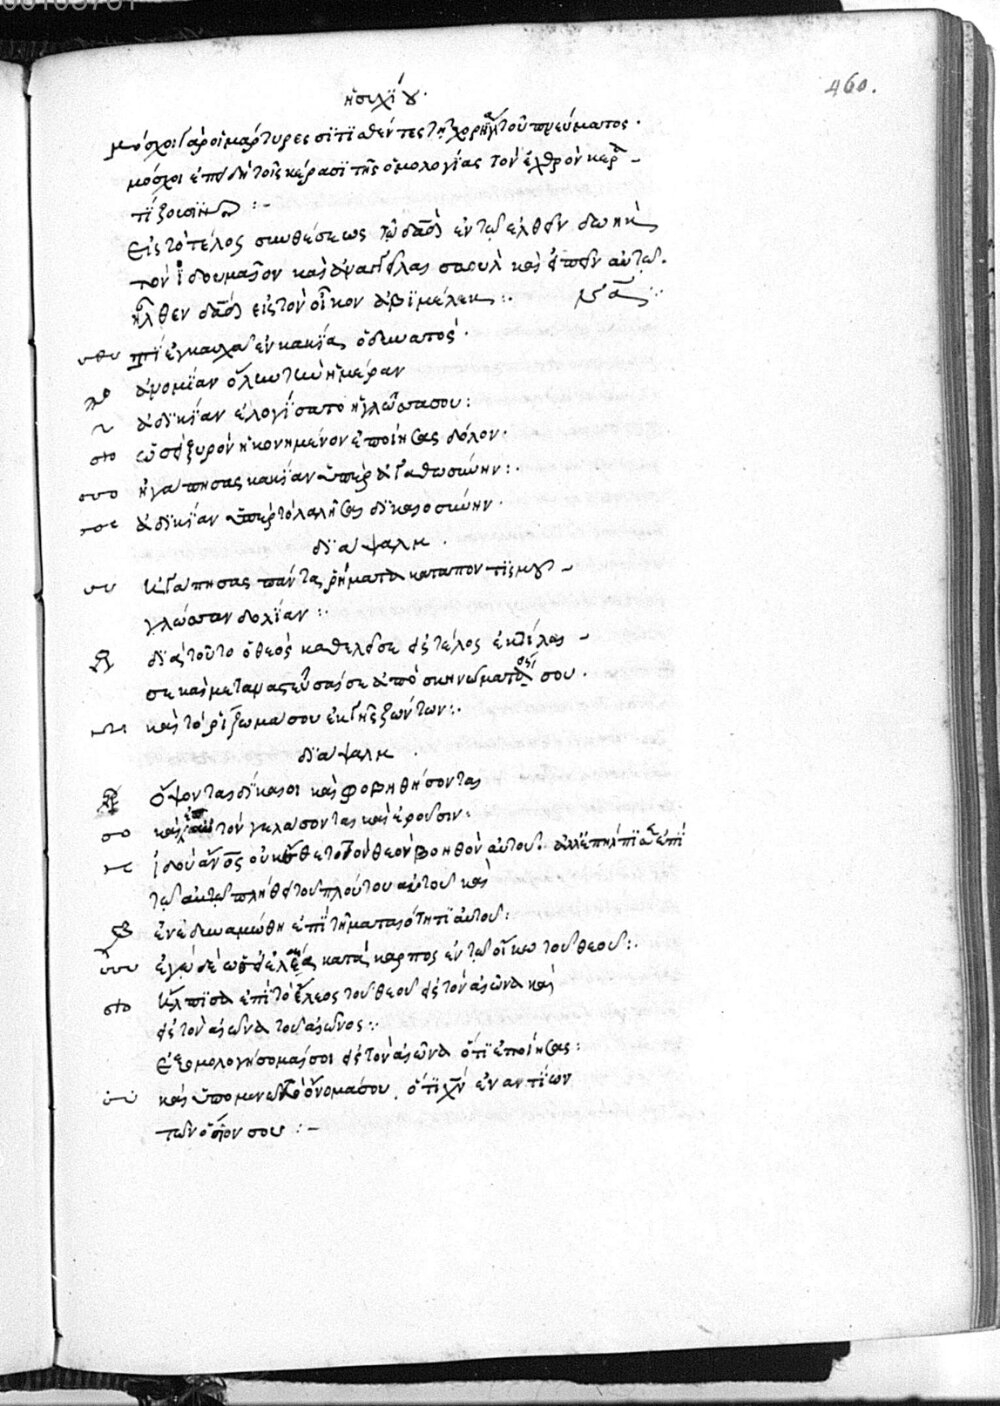 460.
ἡσυχίου·
μόσχοι γὰρ οἱ μάρτυρες σιτιαθέντες τῆ χορηγία τοῦ πνεύματος·
μόσχοι ἐπειδὴ τοῖς κέρασι τῆς ὁμολογίας τὸν ἐχθρὸν κερα
τίζουσιν :-
Εἰς τὸ τέλος συνέσεως τῷ δαδ ἐν τῷ ἐλθεῖν δωὴκ
τὸν ἰδουμαῖον καὶ ἀναγγεῖλαι σαοὺλ καὶ εἰπεῖν αὐτῷ.
ἦλθεν δαδ εἰς τὸν οἶκον ἀβιμέλεκ :. να
τί ἐγκαυχᾶ ἐν κακίᾳ ὁ δυνατὸς·
ἀνομίαν ὅλην τὴν ἡμέραν
ἀδικίαν ἐλογίσατο ἡ γλῶσσα σου :
ὡσεὶ ξυρὸν ἠκονημένον ἐποίησας δόλον·
ἠγάπησας κακίαν ὑπὲρ ἀγαθωσύνην :.
ἀδικίαν ὑπὲρ τὸ λαλῆσαι δικαιοσύνην·
διάψαλμ·
ἠγάπησας πάντα ῥήματα καταποντισμοῦ
γλῶσσαν δολίαν :.
διὰ τοῦτο ὁ θεὸς καθελεῖ σε εἰς τέλος ἐκτίλαι
σε καὶ μεταναστεύσαι σε ἀπὸ σκηνώματός σου·
καὶ τὸ ῥίζωμα σου ἐκ γῆς ζώντων :.
διάψαλμ·
ὄψονται δίκαιοι καὶ φοβηθήσονται
καὶ ἐπ αὐτὸν γελάσονται καὶ ἐροῦσιν·
ἰδοὺ ἄνος ὃς οὐκ ἔθετο τὸν θεὸν βοηθὸν αὐτοῦ. ἀλλ' ἐπήλπισεν ἐπὶ
τῷ πλήθει τοῦ πλούτου αὐτοῦ καὶ
ἐνεδυναμώθη ἐπὶ τῆ ματαιότητι αὐτοῦ :
ἐγὼ δὲ ὡσεὶ ἐλαία κατάκαρπος ἐν τῷ οἴκω τοῦ θεοῦ :.
ἤλπισα ἐπὶ τὸ ἔλεος τοῦ θεοῦ εἰς τὸν αἰῶνα καὶ
εἰς τὸν αἰῶνα τοῦ αἰῶνος :.
ἐξομολογήσομαι σοι εἰς τὸν αἰῶνα ὅτι ἐποίησας :
καὶ ὑπομενῶ τὸ ὄνομα σου. ὅτι χρηστὸν ἐναντίον
τῶν ὁσίων σου :-